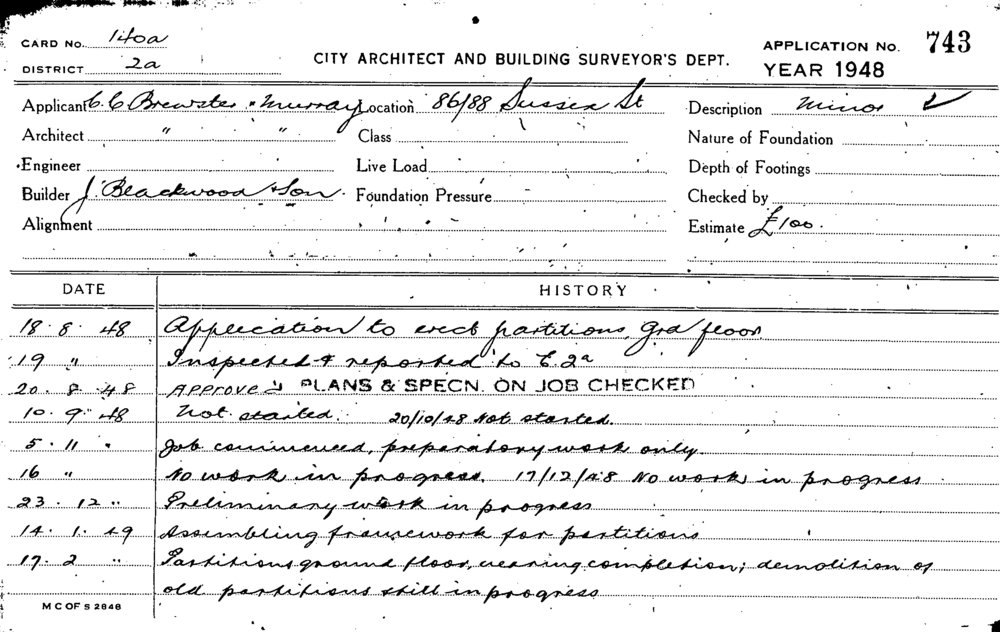 CARD No. 140a
DISTRICT 2a
CITY ARCHITECT AND BUILDING SURVEYOR'S DEPT.
APPLICATION No. 743
YEAR 1948
Applicant C. C. Brewster & Murray Location 86/88 Sussex St Description Minor ✓
Architect " " Class Nature of Foundation
Engineer Live Load Depth of Footings
Builder J. Blackwood & Son. Foundation Pressure Checked by
Alignment Estimate £100.
DATE HISTORY
18.8.48 Application to erect partitions, Grd floor.
19 " Inspected & reported to E.2a
20.8.48 APPROVED PLANS & SPECN. ON JOB CHECKED
10.9.48 Not started. 20/10/48 Not started.
5.11 " Job commenced, preparatory work only.
16 " No work in progress. 17/12/48 No work in progress
23.12 " Preliminary work in progress
14.1.49 Assembling framework for partitions
17.2 " Partitions ground floor, nearing completion; demolition of
old partitions still in progress
M C OF S 2848